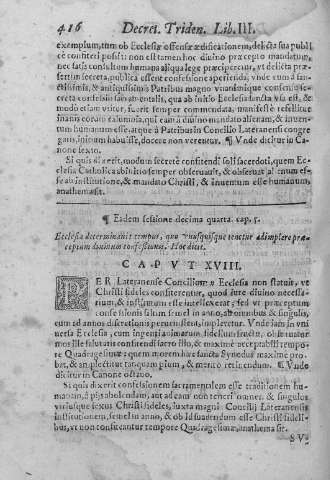 416 Decret. Triden. Lib. III.
exemplum, tum ob Ecclesiæ offensæ ædificationem, delicta sua publi
cè confiteri possit: non est tamen hoc divino præcepto mandatum,
nec satis consultum humana aliqua lege præciperetur, ut delicta præ-
sertim secreta, publica essent confessione aperienda, unde cum à san-
ctissimis, & antiquissimis Patribus magno unanimique consensu se-
creta confessio sacramentalis, qua ab initio Ecclesia sancta usa est, &
modo etiam utitur, fuerit semper commendata, manifestè refellitur
inanis eorum calumnia, qui eam à divino mandato alienam, & inven-
tum humanum esse, atque à Patribus in Concilio Lateranensi congre
gatis, initium habuisse, docere non verentur. ¶ Unde dicitur in Ca-
none sexto.
Si quis dixerit, modum secretè confitendi soli sacerdoti, quem Ec-
clesia Catholica ab initio semper observavit, & observat alienum es-
se ab institutione, & mandato Christi, & inventum esse humanum,
anathema sit.
¶ Eadem sessione decima quarta. cap. 5.
Ecclesia determinavit tempus, quo unusquisque tenetur adimplere præ-
ceptum divinum confessionis. Hoc dicitur.
CAPVT XVIII.
PER Lateranense Concilium Ecclesia non statuit, ut
Christi fideles confiterentur, quod iure divino necessa-
rium, & institutum esse intellexerat, sed ut præceptum
confessionis saltem semel in anno, ab omnibus & singulis,
cum ad annos discretionis pervenissent, impleretur. Unde iam in uni
versa Ecclesia, cum ingenti animarum fidelium fructu, observatur
mos ille salutaris confitendi sacro illo, & maximè acceptabili tempo-
re Quadragesimæ: quem morem hæc sancta Synodus maximè pro-
bat, & amplectitur tanquam pium, & meritò retinendum. ¶ Unde
dicitur in Canone octavo.
Si quis dixerit confessionem sacramentalem esse traditionem hu-
manam, à piis abolendam, aut ad eam non teneri omnes, & singulos
utriusque sexus Christi fideles, iuxta magni Concilij Lateranensis
institutionem, semel in anno, & ob id suadendum esse Christi fideli-
bus, ut non confiteantur tempore Quadragesimæ, anathema sit.
SV-